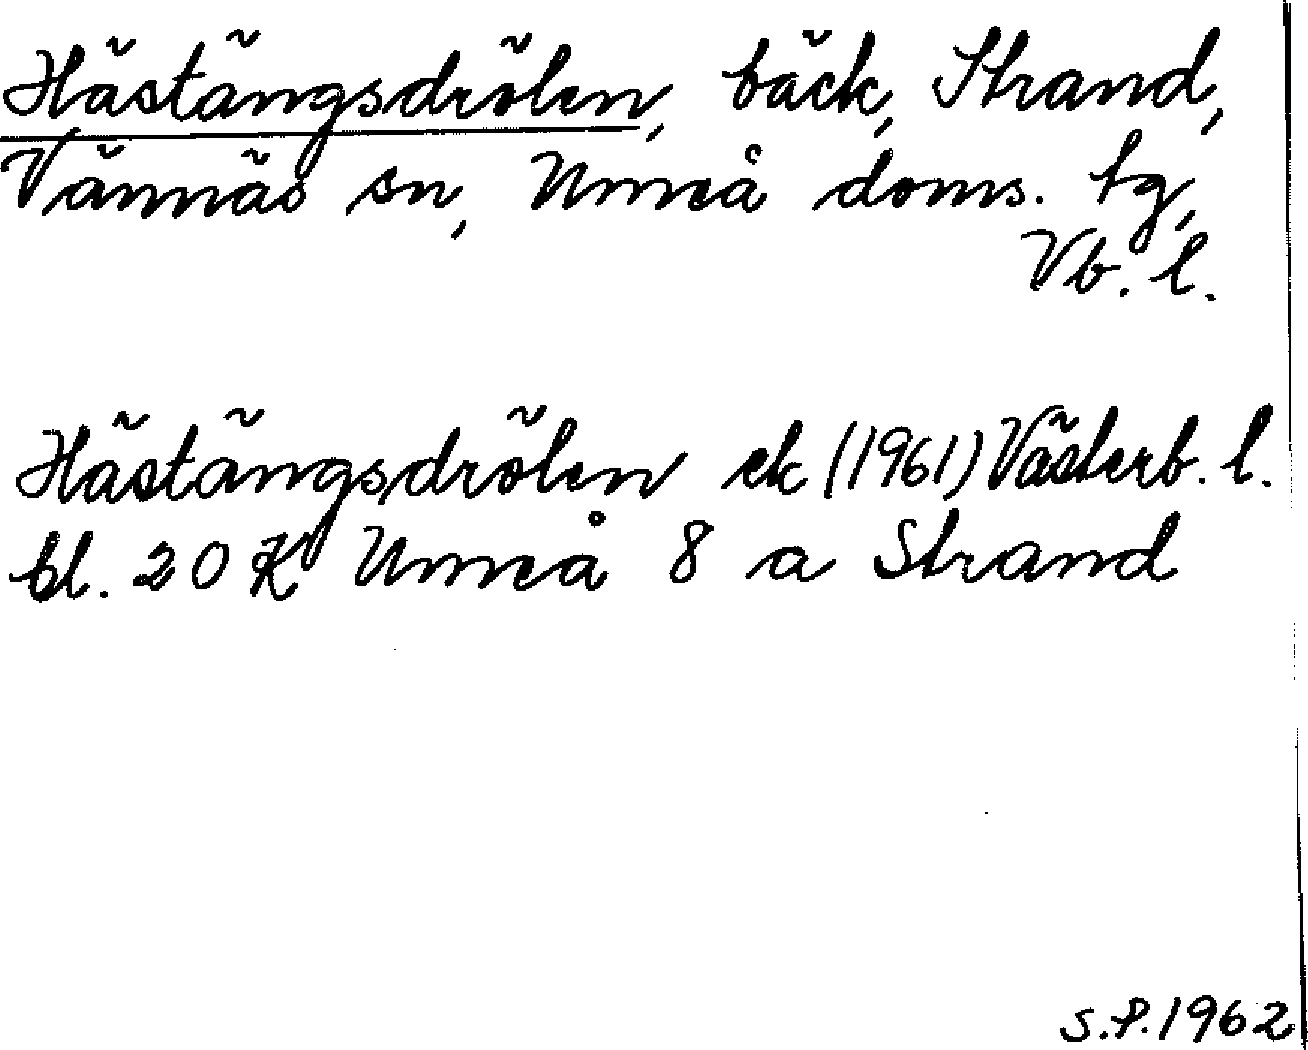 Hästängsdrölen, bäck, Strand,
Vännäs sn, Umeå doms. tg,
Vb. l.
Hästängsdrölen ek (1961) Västerb. l.
bl. 20 K Umeå 8 a Strand
S.P. 1962